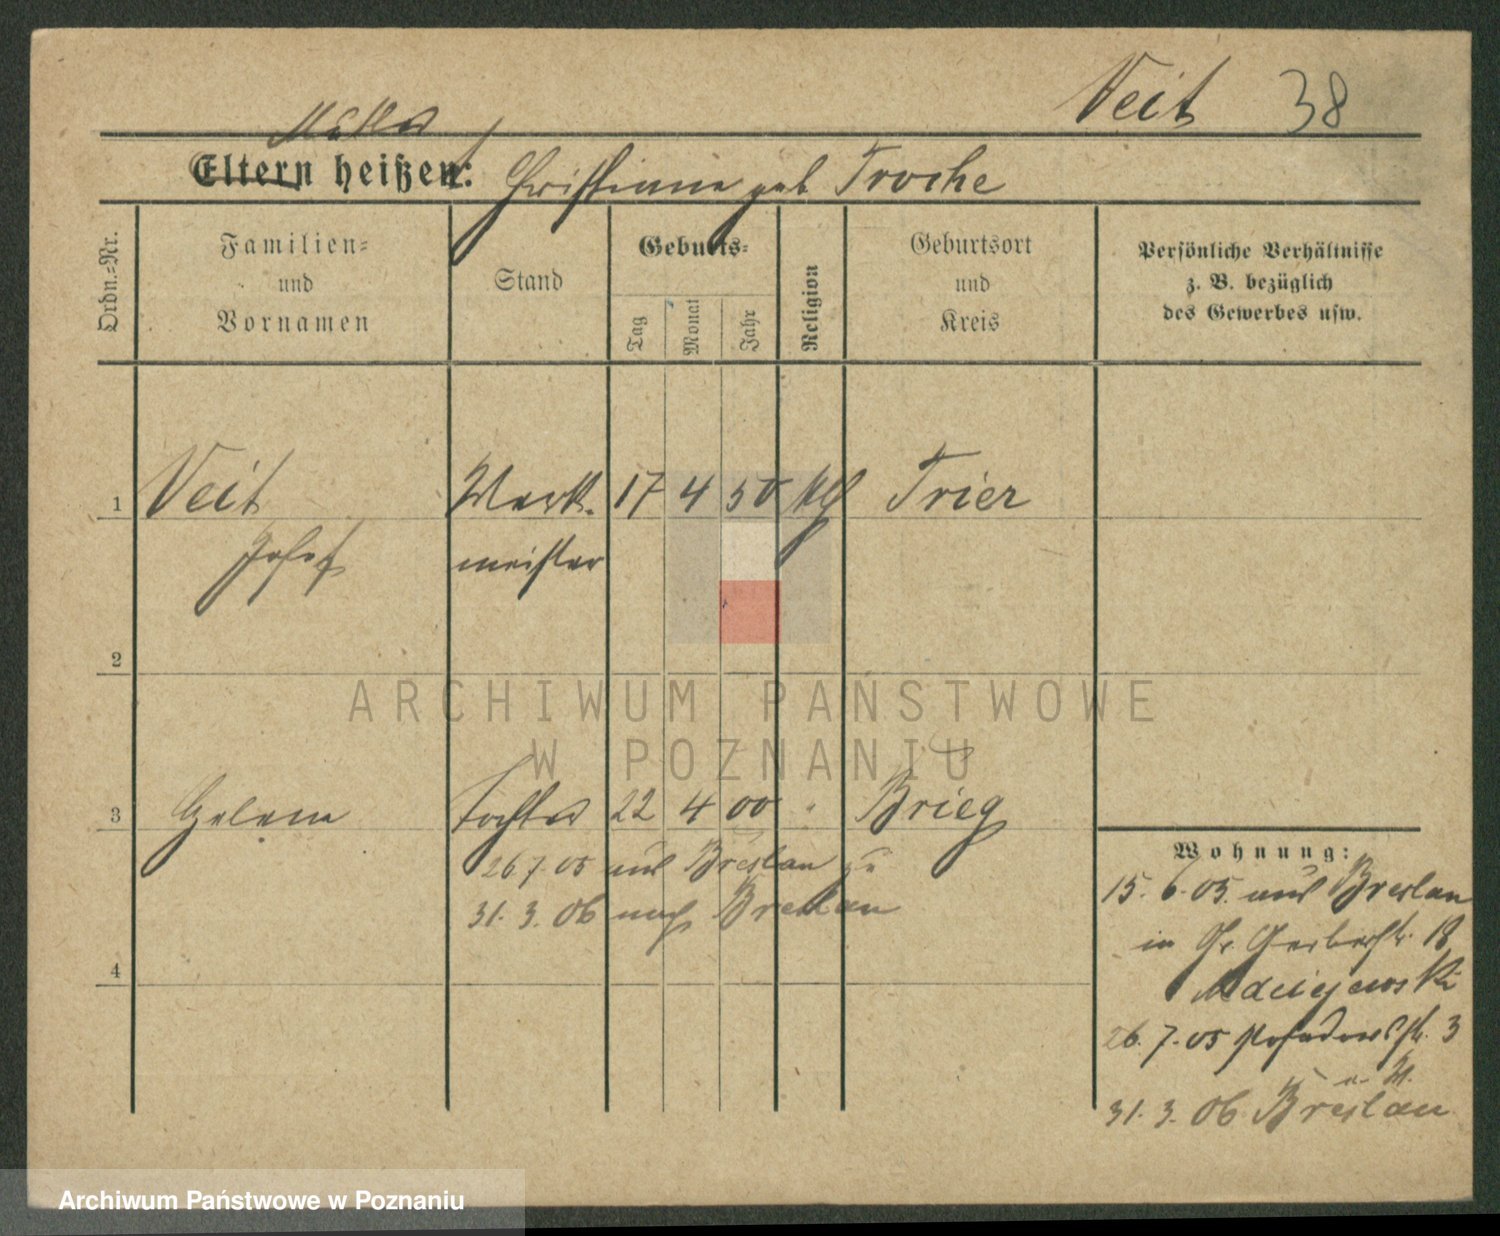 Veit 38
Mutter
Eltern heißen: Christiane geb Troche
Ordn.-Nr.
Familien-
und
Vornamen
Stand
Geburts-
Tag
Monat
Jahr
Religion
Geburtsort
und
Kreis
Persönliche Verhältnisse
z. B. bezüglich
des Gewerbes usw.
1 Veit Werk- 17 4 50 kth Trier
Josef meister
2
ARCHIWUM PAŃSTWOWE
W POZNANIU
3 Helene Tochter 22 4 00 " Brieg
26.7.05 aus Breslau zu
31.3.06 nach Breslau
4
Wohnung:
15.6.05. aus Breslau
in Gr. Gerberstr. 18
Maciejewski
26.7.05 Posadowskistr. 3
31.3.06 Breslau
Archiwum Państwowe w Poznaniu